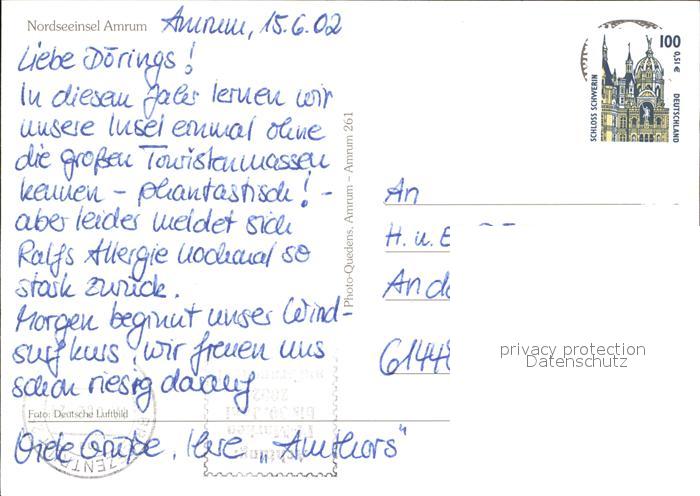 Nordseeinsel Amrum
Amrum, 15.6.02
Liebe Dörings!
In diesem Jahr lernen wir
unsere Insel einmal ohne
die großen Touristenmassen
kennen - phantastisch! -
aber leider meldet sich
Ralfs Allergie nochmal so
stark zurück.
Morgen beginnt unser Wind-
surfkurs, wir freuen uns
schon riesig darauf
Foto: Deutsche Luftbild
Viele Grüße, Ihre „Amthors“
Photo-Quedens, Amrum – Amrum 261
100
0,51€
SCHLOSS SCHWERIN
DEUTSCHLAND
An
H. u. E
And
61448
privacy protection
Datenschutz